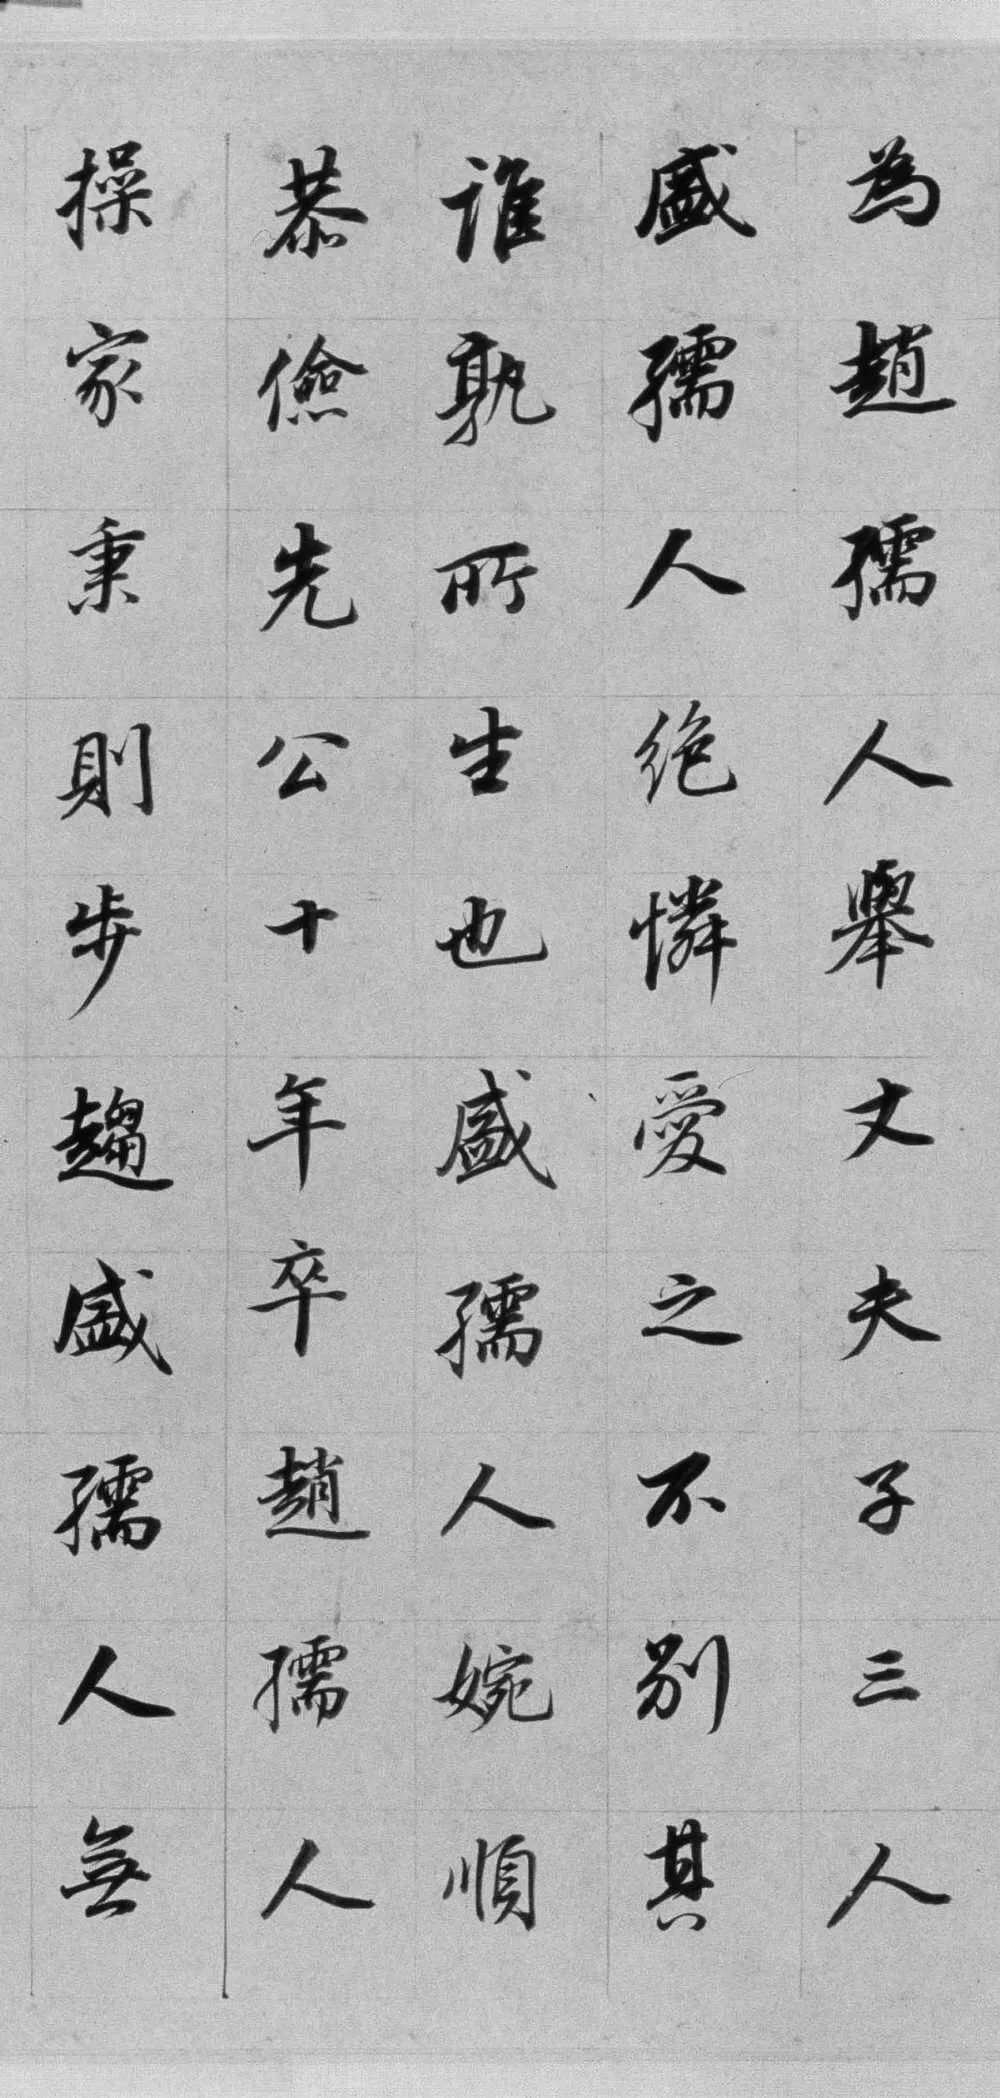 為趙孺人舉丈夫子三人
盛孺人絶憐愛之不別其
誰孰所生也盛孺人婉順
恭儉先公十年卒趙孺人
操家秉則步趨盛孺人無